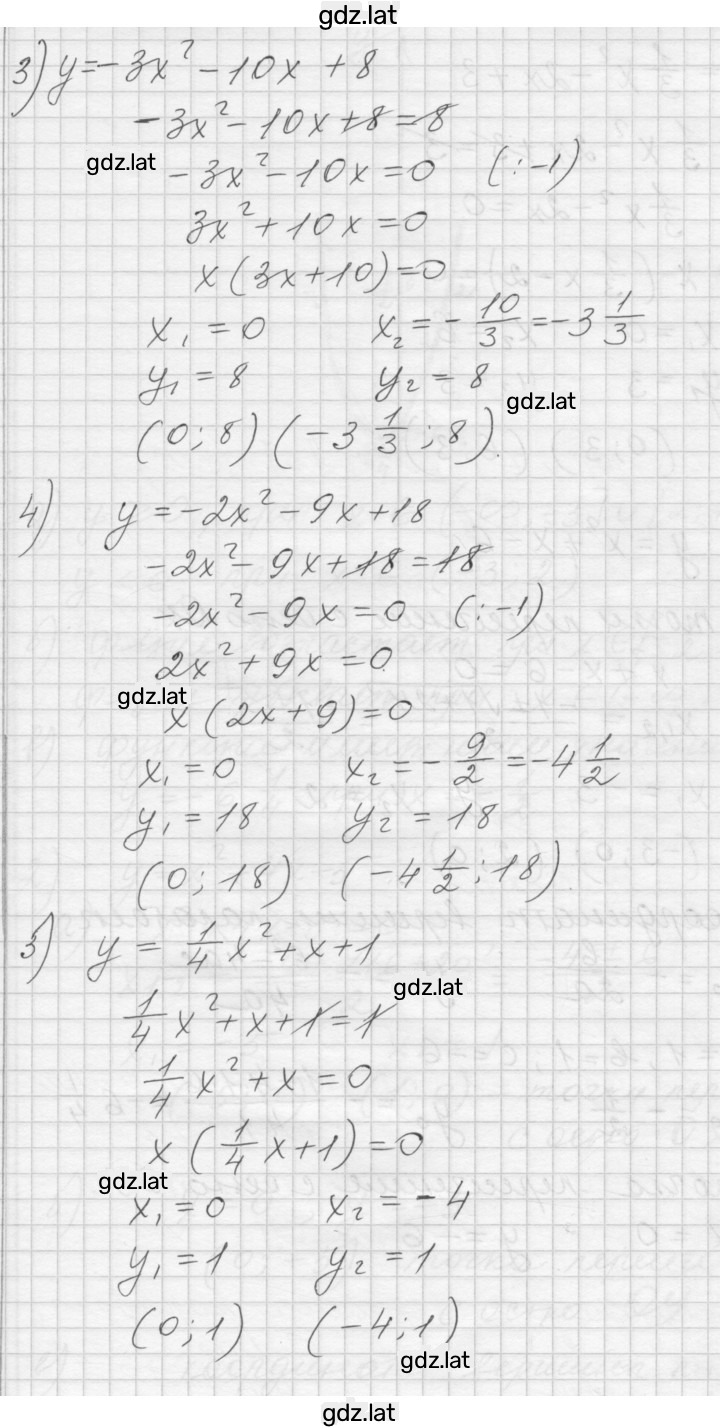 gdz.lat
3) y=-3x² - 10x + 8
-3x² - 10x + 8 = 8
gdz.lat
-3x² - 10x = 0 (:-1)
3x² + 10x = 0
x(3x+10)=0
x₁ = 0 x₂ = -10/3 = -3 1/3
y₁ = 8 y₂ = 8
gdz.lat
(0; 8) (-3 1/3; 8).
4) y = -2x² - 9x + 18
-2x² - 9x + 18 = 18
-2x² - 9x = 0 (:-1)
2x² + 9x = 0
gdz.lat
x(2x+9)=0
x₁ = 0 x₂ = -9/2 = -4 1/2
y₁ = 18 y₂ = 18
(0; 18) (-4 1/2; 18).
5) y = 1/4 x² + x + 1
gdz.lat
1/4 x² + x + 1 = 1
1/4 x² + x = 0
x(1/4 x + 1) = 0
gdz.lat
x₁ = 0 x₂ = -4
y₁ = 1 y₂ = 1
(0; 1) (-4; 1)
gdz.lat
gdz.lat